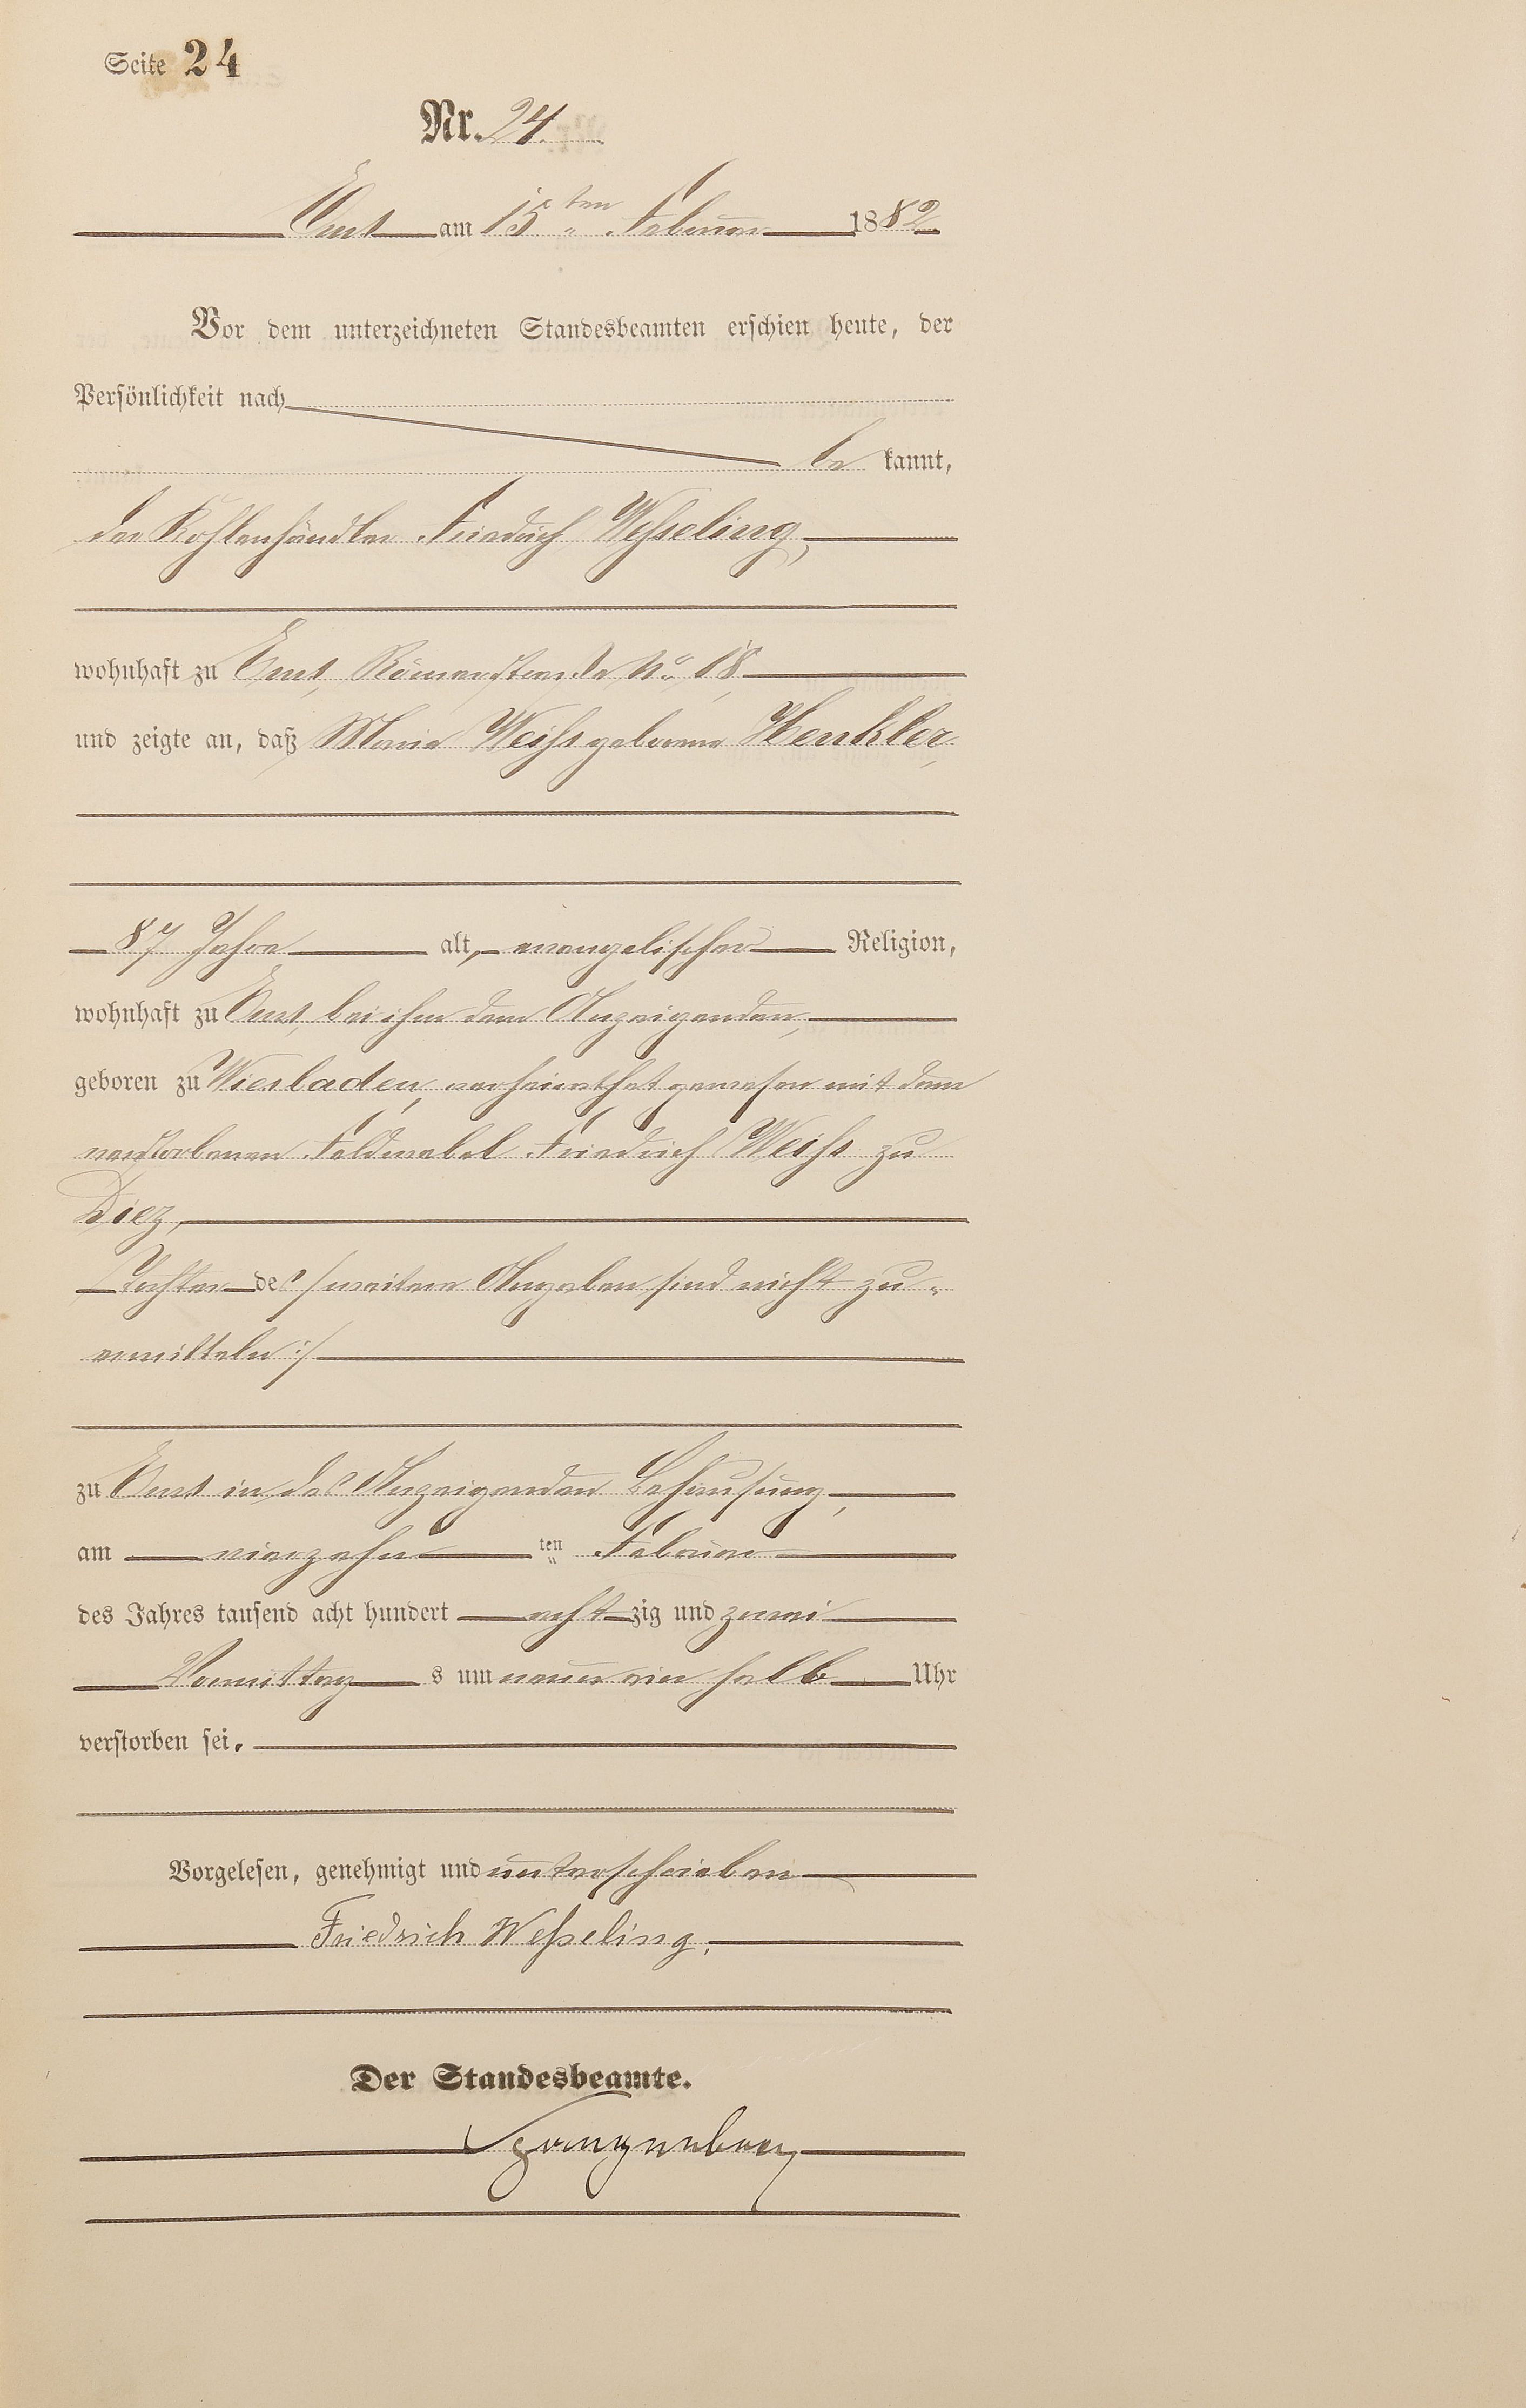 Seite 24
Nr. 24.
Ems am 15ten Februar 1882
Vor dem unterzeichneten Standesbeamten erschien heute, der
Persönlichkeit nach
be kannt,
der Kohlenhändler Friedrich Weßeling,
wohnhaft zu Ems, Römerstraße No 18
und zeigte an, daß Marie Weiß geborene Henkler,
87 Jahre alt, evangelischer Religion,
wohnhaft zu Ems, bei ihm dem Anzeigenden,
geboren zu Wiesbaden, verheirathet gewesen mit dem
verstorbenen Feldwebel Friedrich Weiß zu
Diez,
Tochter des /: weitere Angaben sind nicht zu
ermitteln :/
zu Ems in des Anzeigenden Behausung,
am vierzehnten Februar
des Jahres tausend acht hundert achtzig und zwei
Vormittags um neun ein halb Uhr
verstorben sei.
Vorgelesen, genehmigt und unterschrieben
Friedrich Weßeling.
Der Standesbeamte.
Spangenberg